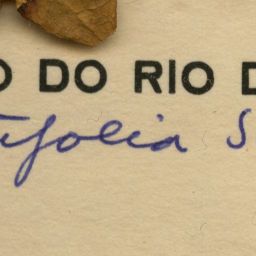 O DO RIO D
tifolia S